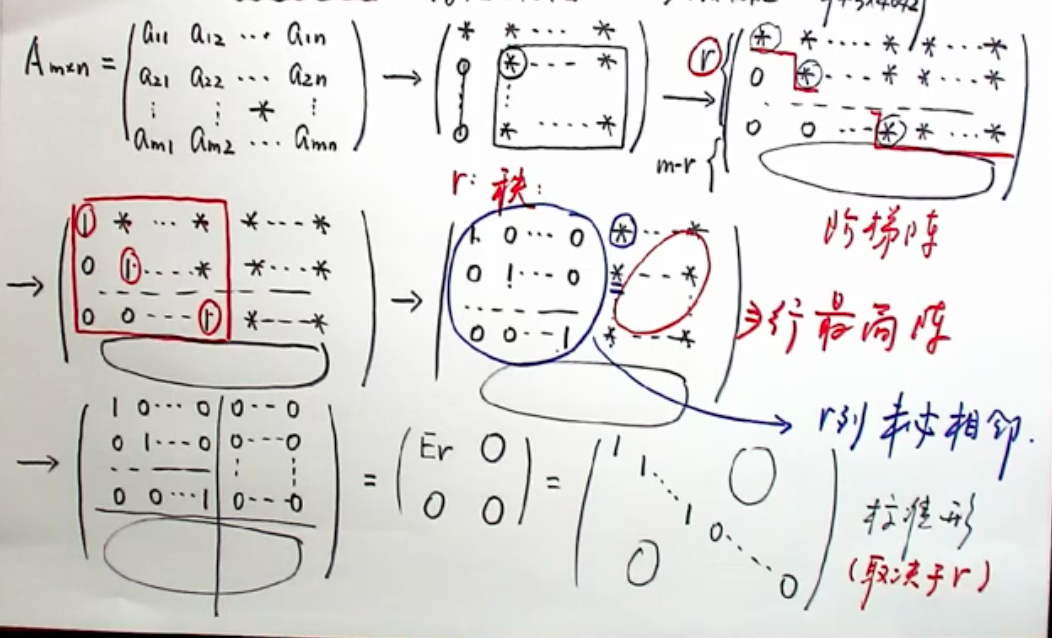 A_{m×n} = ( a11 a12 ⋯ a1n
a21 a22 ⋯ a2n
⋮ ⋮ * ⋮
am1 am2 ⋯ amn )
→ ( * * ⋯ *
0 * ---- *
⋮
0 * ⋯ * )
→ r { ( * * ----* *----*
0 * ----* *----*
- - - - -
0 0 ---* *----*
m-r { )
r: 秩:
阶梯阵
→ ( 1 * ⋯ * *----*
0 1 ----* *----*
- - - - -
0 0 ---1 *---* )
→ ( 1 0 ⋯ 0 * ---- *
0 1 ⋯ 0 * --- *
- - - - -
0 0 --- 1 * --- * )
⇒行最简阵
r列未必相邻.
→ ( 1 0 ⋯ 0 0 --- 0
0 1 ⋯ 0 0 ⋯ 0
- - - - ⋮ ⋮
0 0 ⋯ 1 0 --- 0 )
= ( Er 0
0 0 )
= ( 1
1
⋱
1 0
0 ⋱
0 )
标准形
(取决于r)